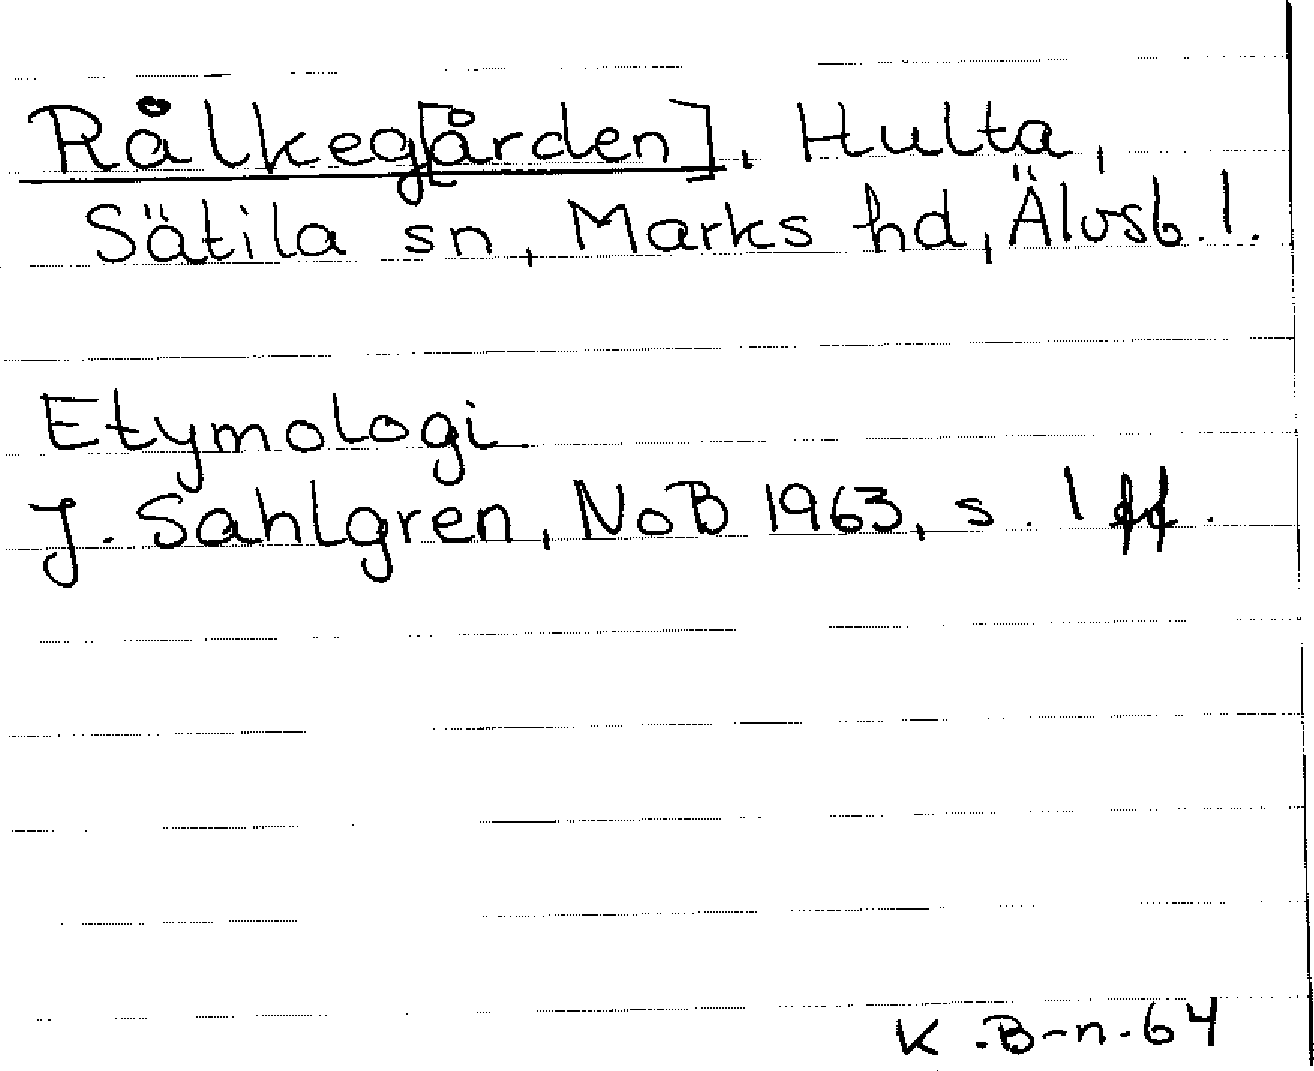 Rålkeg[ården], Hulta,
Sätila sn, Marks hd, Älvsb. l.
Etymologi
J. Sahlgren, NoB 1963, s. 1 ff.
K.B-n.64